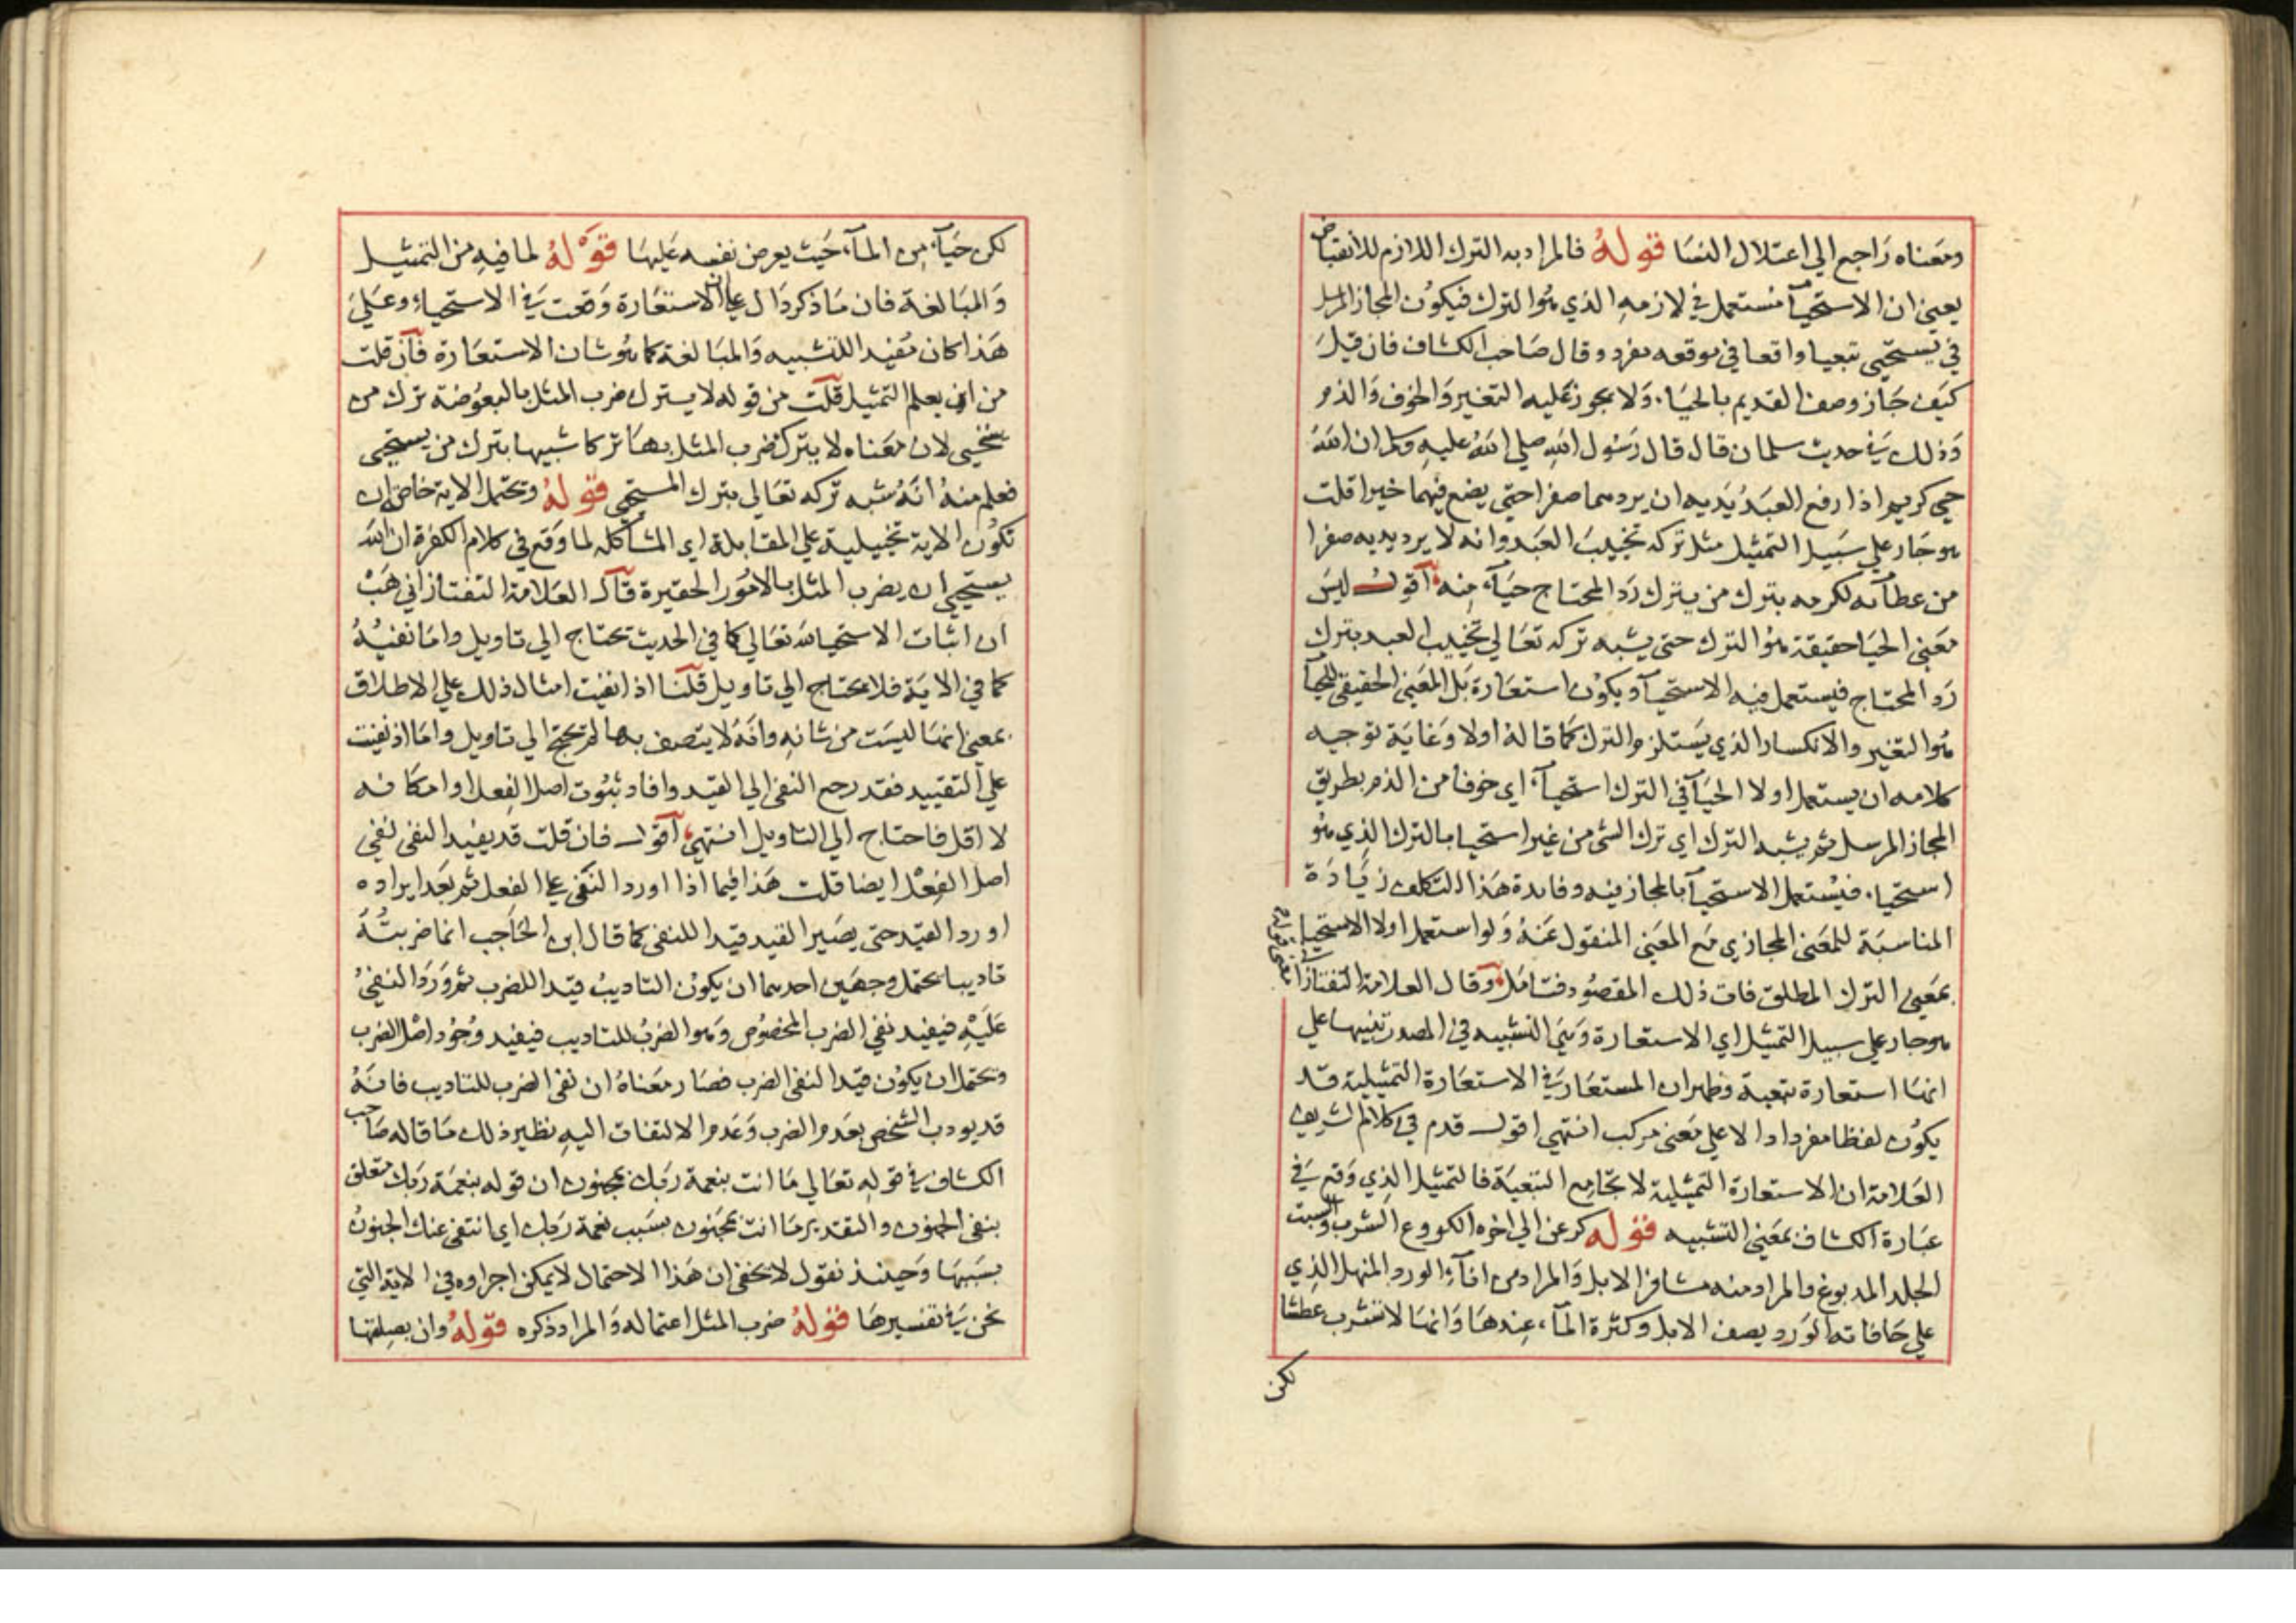 ومعناه راجع الي اعتلال النسا قوله فالمراد به الترك اللازم للانقباض
يعني ان الاستحيآ مستعمل في لازمه الذي هو الترك فيكون المجاز المرسل
في يستحيي تبعيا واقعا في موقعه مفرد وقال صاحب الكشاف فان قيل
كيف جاز وصف القديم بالحياء ولا يجوز عليه التغير والخوف والذم
وذلك في حديث سلمان قال قال رسول الله صلي الله عليه وسلم ان الله
حيي كريم اذا رفع العبد يديه ان يردهما صفرا حتي يضع فيهما خيرا قلت
هو جار علي سبيل التمثيل مثل تركه تخييب العبد وانه لا يرد يديه صفرا
من عطآئه لكرمه بترك من يترك رد المحتاج حيآء منه اقول ليس
معني الحيا حقيقة هو الترك حتي يشبه تركه تعالي تخييب العبد بترك
رد المحتاج فيستعمل فيه الاستحيآ ويكون استعارة بل المعني الحقيقي للحيآ
هو التغير والانكسار الذي يستلزم الترك كما قاله اولا وغاية توجيه
كلامه ان يستعمل اولا الحيآ في الترك استحيآء اي خوفا من الذم بطريق
المجاز المرسل ثم يشبه الترك اي ترك الشي من غير استحيا بالترك الذي هو
استحياء فيستعمل الاستحيآ بالمجاز فيه وفايدة هذا التكلف زيادة
المناسبة للمعني المجازي مع المعني المنقول عنه ولو استعمل اولا الاستحيا
بمعني الترك المطلق فات ذلك المقصود فتامل وقال العلامة التفتازاني
هو جار علي سبيل التمثيل اي الاستعارة وبني التشبيه في المصدر تنبيها علي
انها استعارة تبعية وظهر ان المستعار في الاستعارة التمثيلية قد
يكون لفظا مفردا دالا علي معني مركب انتهي اقول قدم في كلام الشريف
العلامة ان الاستعارة التمثيلية لا تجامع التبعية فالتمثيل الذي وقع في
عبارة الكشاف بمعني التشبيه قوله كرعن الي اخره الكروع الشرب والسبت
الجلد المدبوغ والمراد منه مشافر الابل والمراد من انآء الورد المنهل الذي
علي حافاته الورد يصف الابل وكثرة المآء عندها وانها لا تشرب عطشا
لكن
لكن حيآء من المآء حيث يعرض نفسه عليها قوله لما فيه من التمثيل
والمبالغة فان ما ذكر دال علي ان الاستعارة وقعت في الاستحياء وعلي
هذا كان مفيدا للتشبيه والمبالغة كما هو شان الاستعارة فان قلت
من اين يعلم التمثيل قلت من قوله لا يترك ضرب المثل بالبعوضة ترك من
يستحيي لان معناه لا يترك ضرب المثل بها تركا شبيها بترك من يستحيي
فعلم منه انه شبه تركه تعالي بترك المستحيي قوله وتحتمل الاية خاصة ان
تكون الاية تخييلية علي المقابلة اي المشاكلة لما وقع في كلام الكفرة ان الله
يستحيي ان يضرب المثل بالامور الحقيرة قال العلامة التفتازاني هب
ان اثبات الاستحيا لله تعالي كما في الحديث يحتاج الي تاويل واما نفيه
كما في الاية فلا يحتاج الي تاويل قلنا اذا نفيت امثال ذلك علي الاطلاق
بمعني انها ليست من شانه وانه لا يتصف بها لم يحتج الي تاويل واما اذا نفيت
علي التقييد فقد رجع النفي الي القيد وافاد ثبوت اصل الفعل او امكانه
لا اقل فاحتاج الي التاويل انتهي اقول فان قلت قد يفيد النفي نفي
اصل الفعل ايضا قلت هذا فيما اذا اورد النفي علي الفعل ثم بعد ايراده
اورد القيد حتي يصير القيد قيدا للنفي كما قال ابن الحاجب انما ضربته
تاديبا يحتمل وجهين احدهما ان يكون التاديب قيدا للضرب ثم ورد النفي
عليه فيفيد نفي الضرب المخصوص وهو الضرب للتاديب فيفيد وجود اصل الضرب
ويحتمل ان يكون قيدا لنفي الضرب فصار معناه ان نفي الضرب للتاديب فانه
قد يودب الشخص بعدم الضرب وعدم الالتفات اليه نظير ذلك ما قاله صاحب
الكشاف في قوله تعالي ما انت بنعمة ربك بمجنون ان قوله بنعمة ربك متعلق
بنفي الجنون والتقدير ما انت بمجنون بسبب نعمة ربك اي انتفي عنك الجنون
بسببها وحينئذ نقول لا يخفي ان هذا الاحتمال لا يمكن اجراوه في الاية التي
نحن في تفسيرها قوله ضرب المثل اعتماله والمراد ذكره قوله وان بصلتها